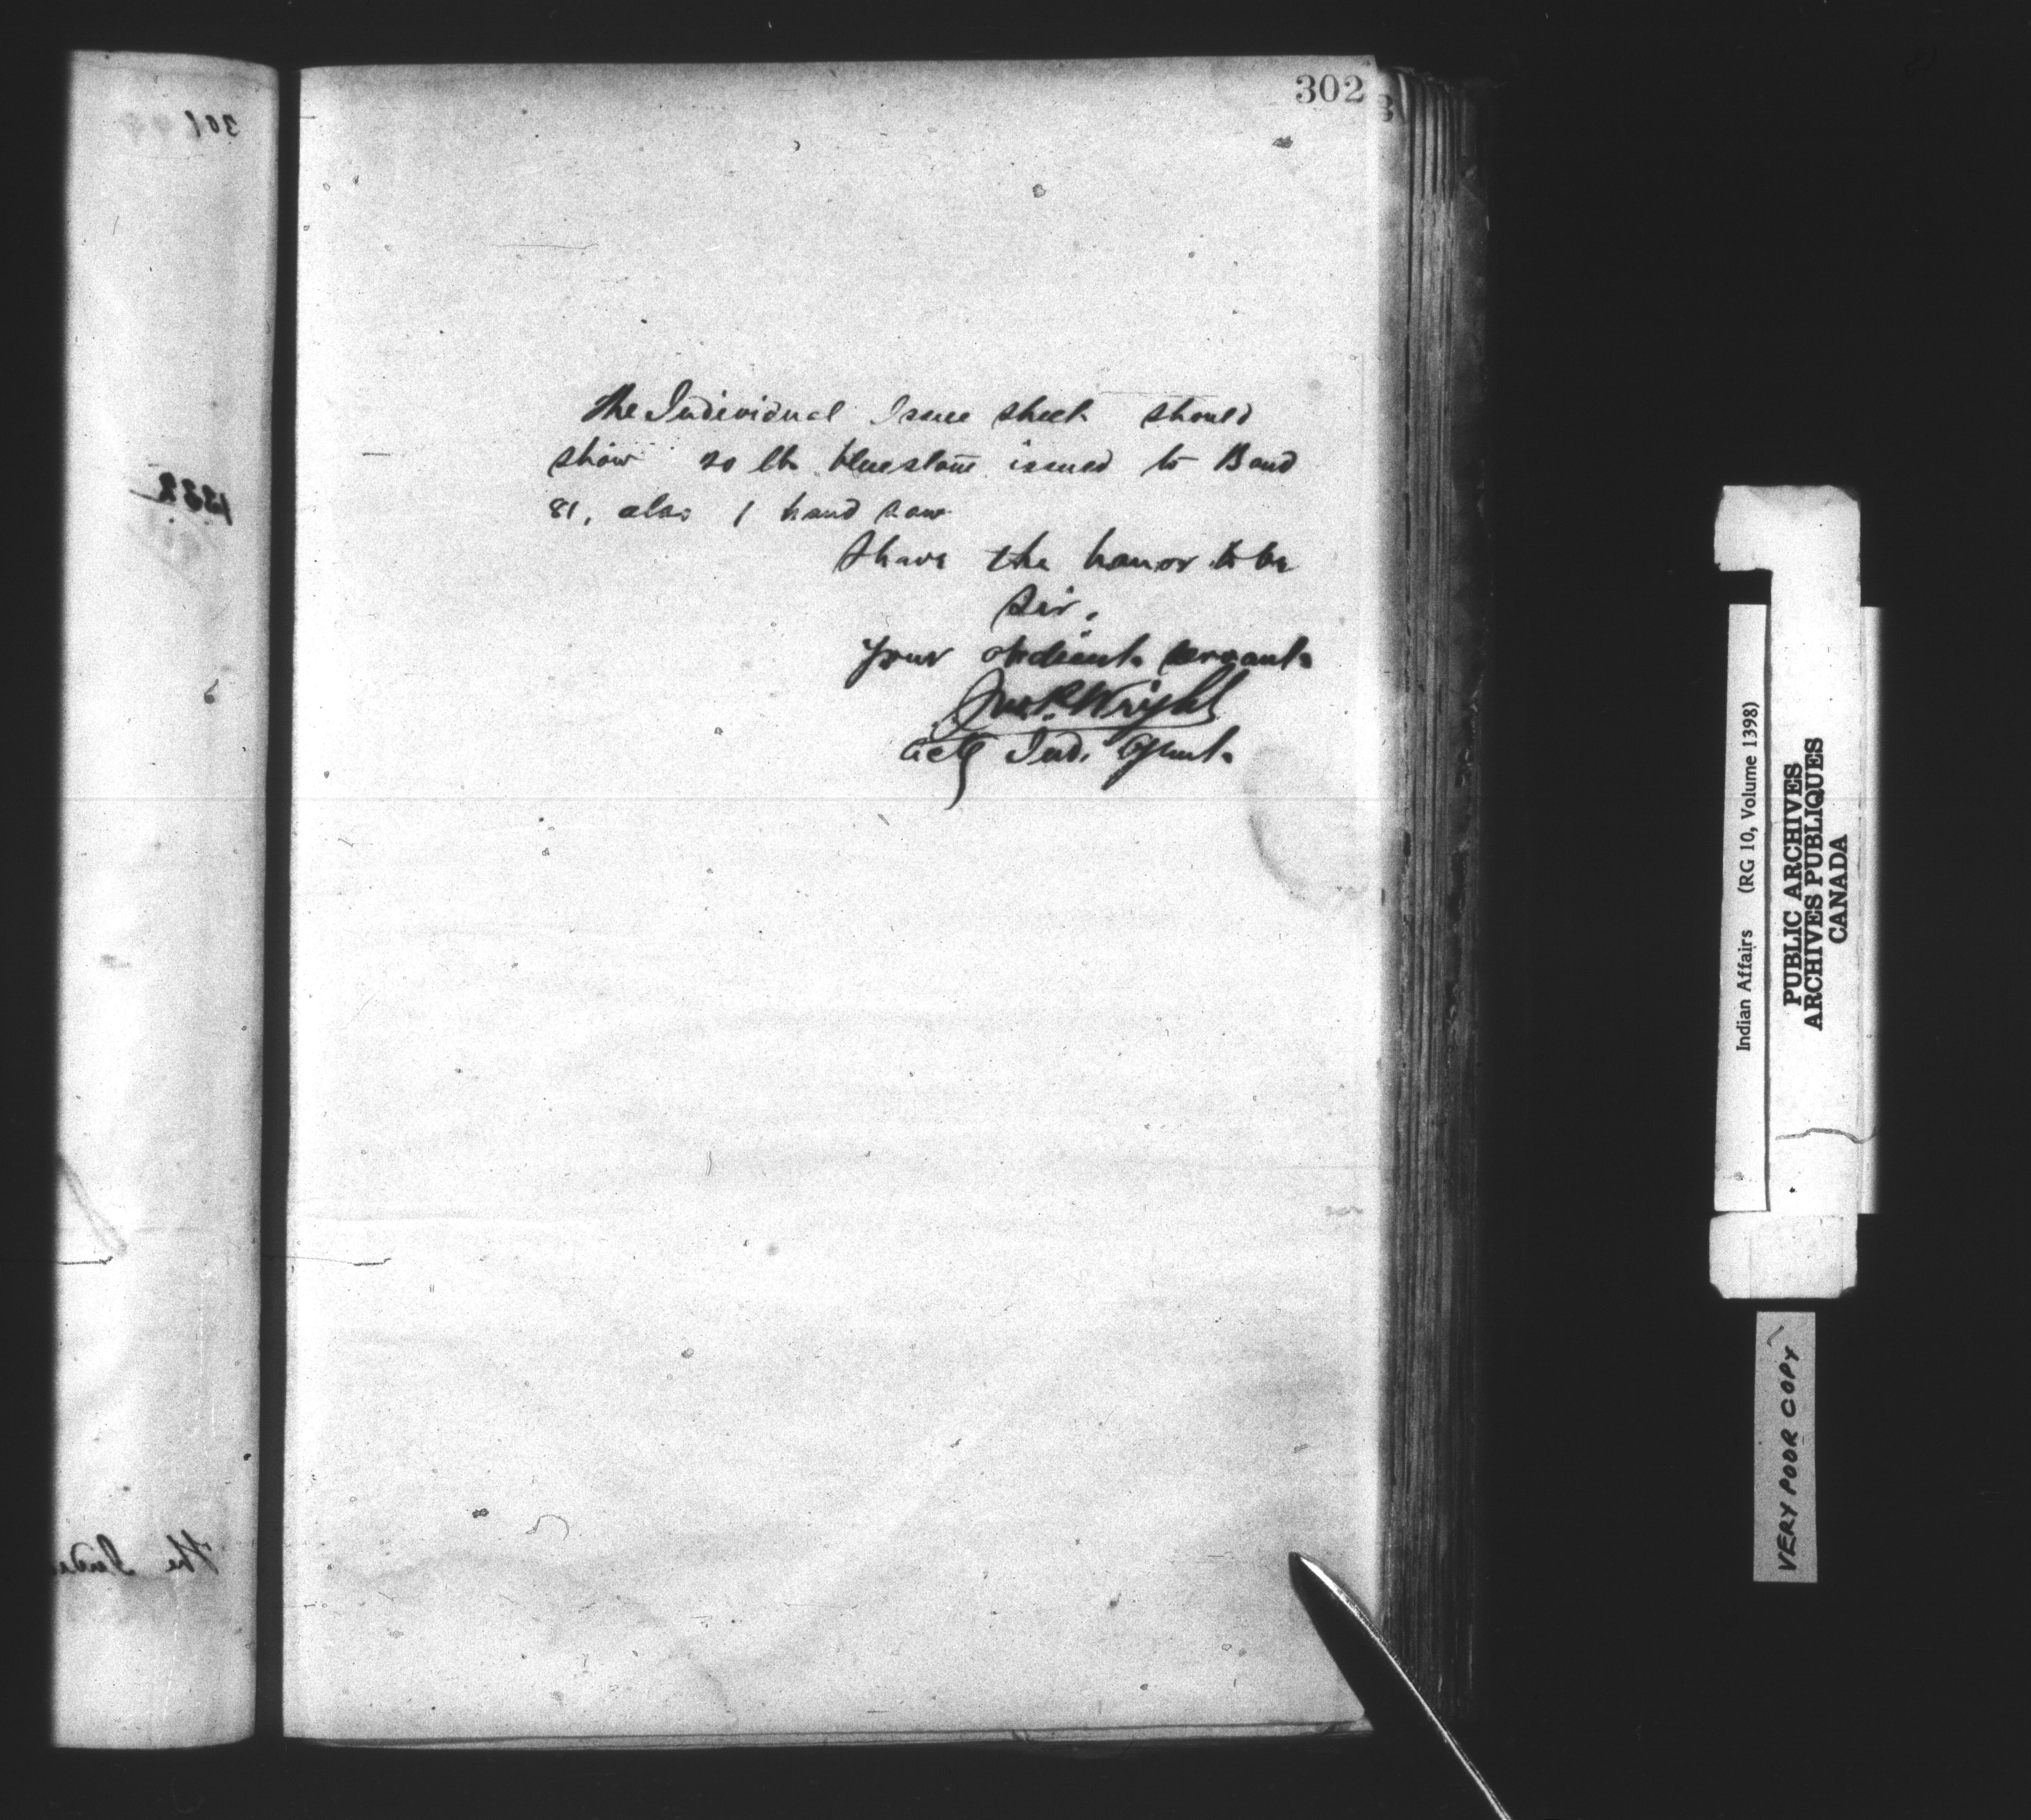 302
The Individual Issue sheet should
show 20 lb bluestone issued to Band
81, also 1 hand saw
I have the honor to be
Sir,
Your obedient servant
Jno. P. Wright
Actg Ind. Agent.
301
1332
6
The Indi
Indian Affairs (RG 10, Volume 1398)
PUBLIC ARCHIVES
ARCHIVES PUBLIQUES
CANADA
VERY POOR COPY